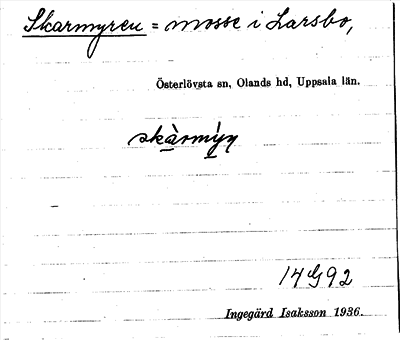 Skarmyren = mosse i Larsbo,
Österlövsta sn, Olands hd, Uppsala län.
skàrmỳṇ
14 G 92
Ingegärd Isaksson 1936.